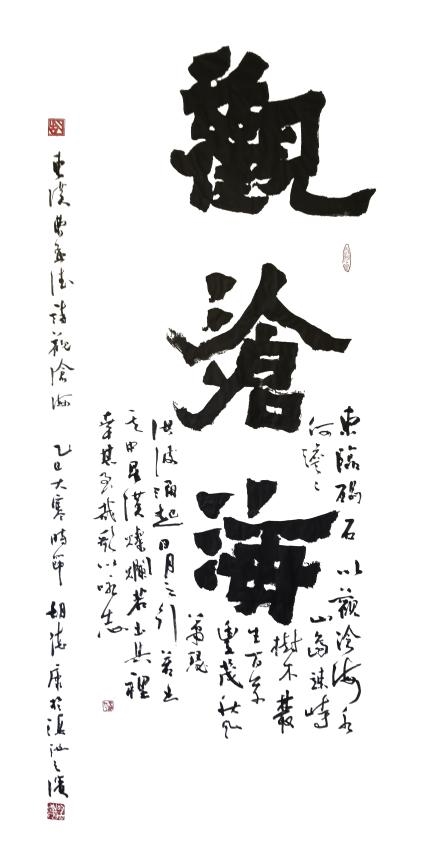 觀滄海
東臨碣石以觀滄海水
何澹々
山島竦峙
樹木叢
生百草
豐茂秋風
蕭瑟
洪波涌起日月之行若出
其中星漢燦爛若出其裡
幸甚至哉歌以咏志
東漢曹孟德詩觀滄海 乙巳大寒時節 胡 康於滇池之濱